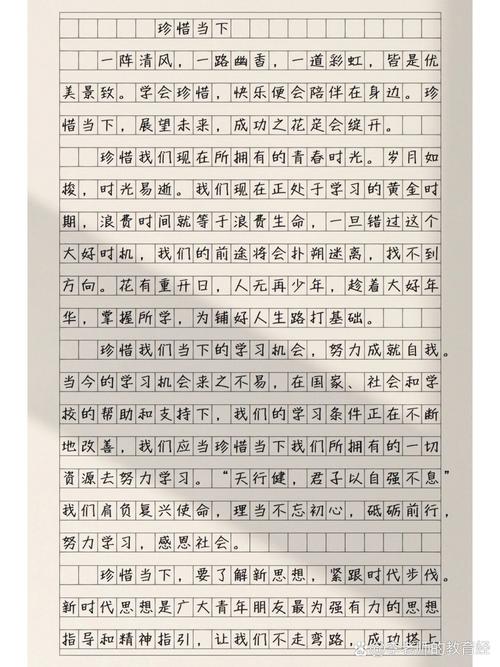 珍惜当下
一阵清风，一路幽香，一道彩虹，皆是优
美景致。学会珍惜，快乐便会陪伴在身边。珍
惜当下，展望未来，成功之花定会绽开。
珍惜我们现在所拥有的青春时光。岁月如
梭，时光易逝。我们现在正处于学习的黄金时
期，浪费时间就等于浪费生命，一旦错过这个
大好时机，我们的前途将会扑朔迷离，找不到
方向。花有重开日，人无再少年，趁着大好年
华，掌握所学，为铺好人生路打基础。
珍惜我们当下的学习机会，努力成就自我。
当今的学习机会来之不易，在国家、社会和学
校的帮助和支持下，我们的学习条件正在不断
地改善，我们应当珍惜当下我们所拥有的一切
资源去努力学习。“天行健，君子以自强不息”
我们肩负复兴使命，理当不忘初心，砥砺前行，
努力学习，感恩社会。
珍惜当下，要了解新思想，紧跟时代步伐。
新时代思想是广大青年朋友最为强有力的思想
指导和精神指引，让我们不走弯路，成功搭上